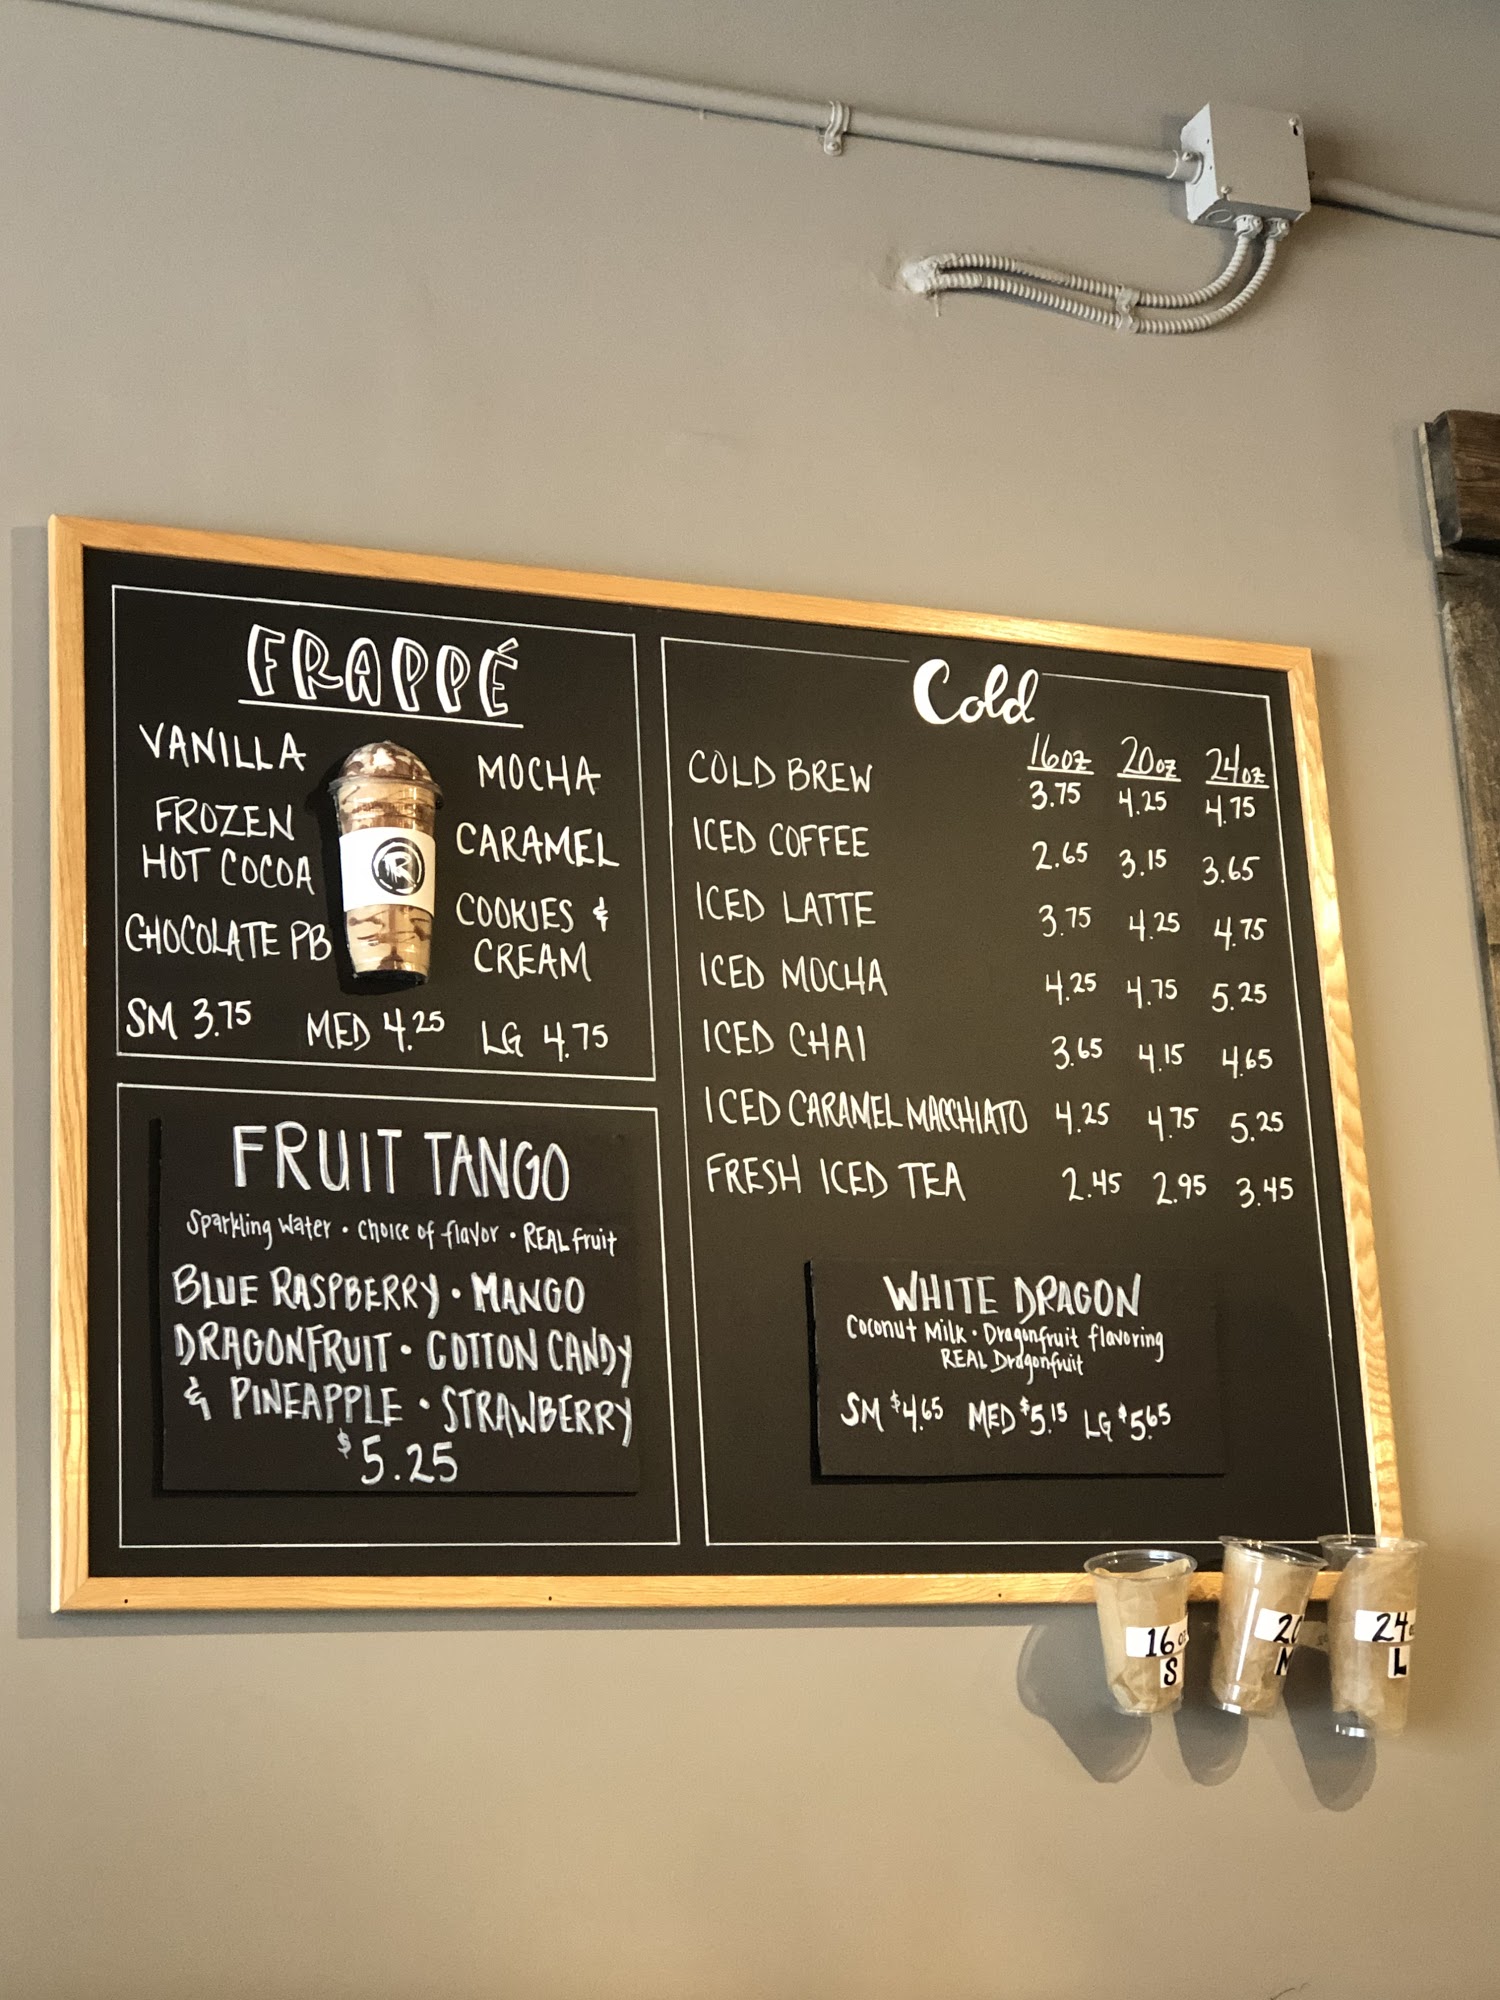 FRAPPÉ
VANILLA
FROZEN
HOT COCOA
CHOCOLATE PB
R
MOCHA
CARAMEL
COOKIES &
CREAM
SM 3.75 MED 4.25 LG 4.75
FRUIT TANGO
Sparkling Water • Choice of flavor • REAL fruit
BLUE RASPBERRY • MANGO
DRAGONFRUIT • COTTON CANDY
& PINEAPPLE • STRAWBERRY
$5.25
Cold
16oz 20oz 24oz
COLD BREW 3.75 4.25 4.75
ICED COFFEE 2.65 3.15 3.65
ICED LATTE 3.75 4.25 4.75
ICED MOCHA 4.25 4.75 5.25
ICED CHAI 3.65 4.15 4.65
ICED CARAMEL MACCHIATO 4.25 4.75 5.25
FRESH ICED TEA 2.45 2.95 3.45
WHITE DRAGON
Coconut Milk • Dragonfruit flavoring
REAL Dragonfruit
SM $4.65 MED $5.15 LG $5.65
16 oz
S
20
M
24
L